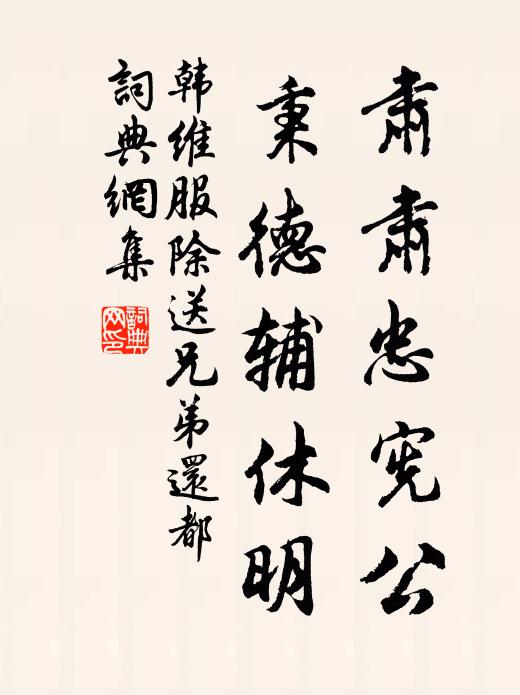 肃肃忠宪公
秉德辅休明
韩维服除送兄弟還都
詞典網集
詞典网印